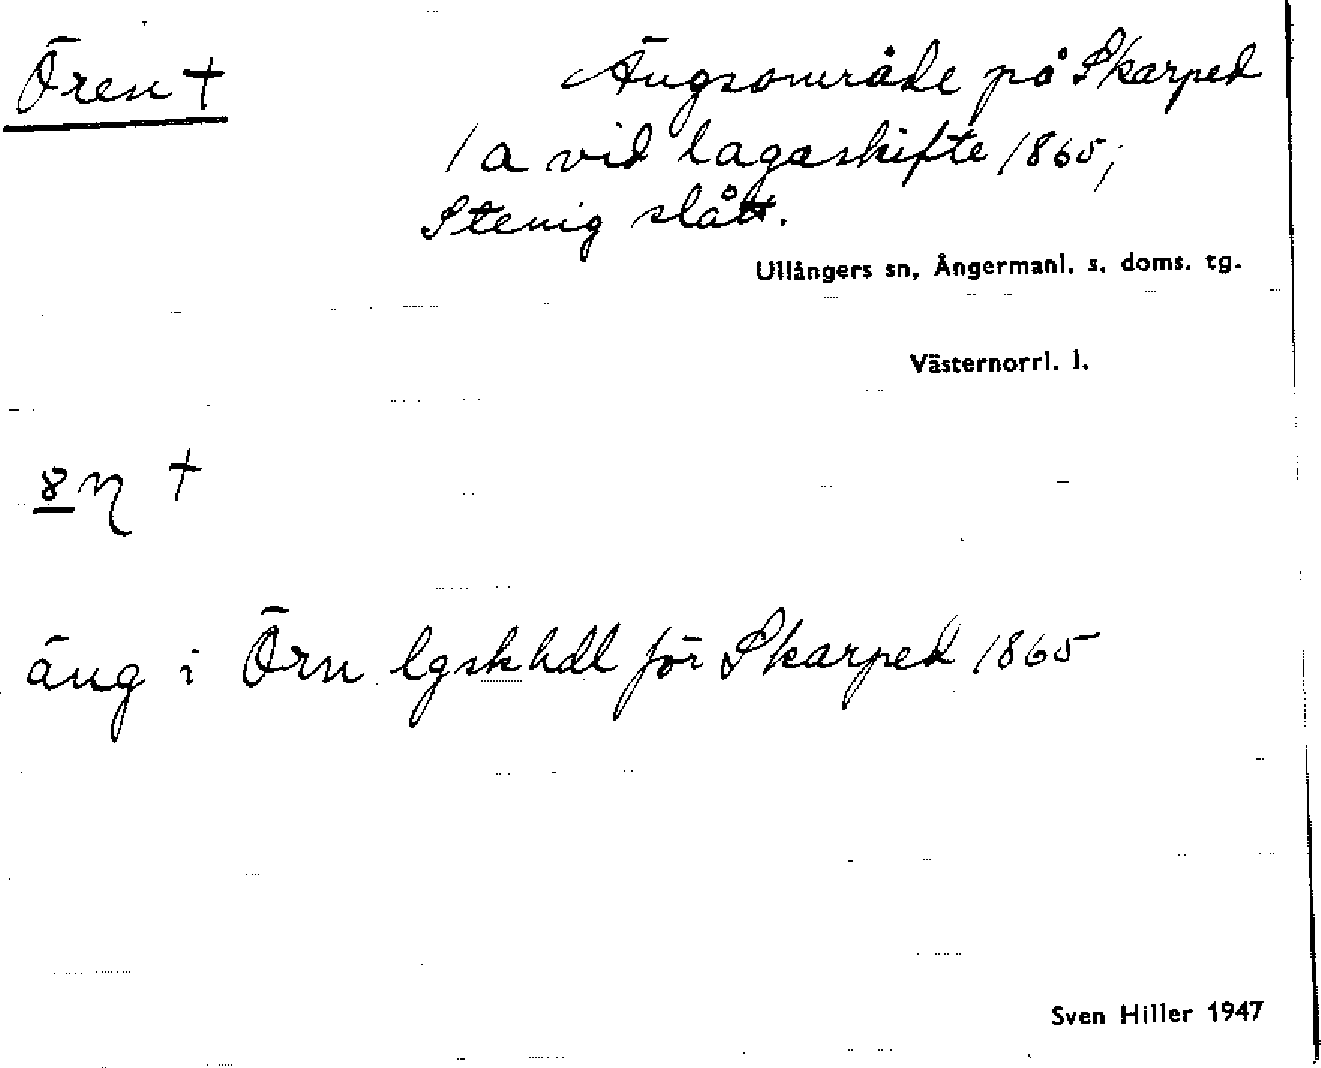 Ören +
Ängsområde på Skarped
1a vid lagaskifte 1865;
Stenig slått.
Ullångers sn, Ångermanl. s. doms. tg.
Västernorrl. l.
+
äng i Örn lgskhdl för Skarped 1865
Sven Hiller 1947